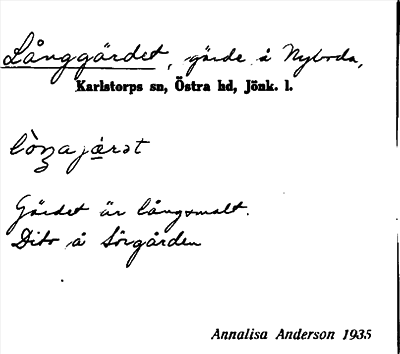 Långgärdet, gärde å Nyboda,
Karlstorps sn, Östra hd, Jönk. l.
Gärdet är långsmalt.
Dito å Sörgården
Annalisa Anderson 1935